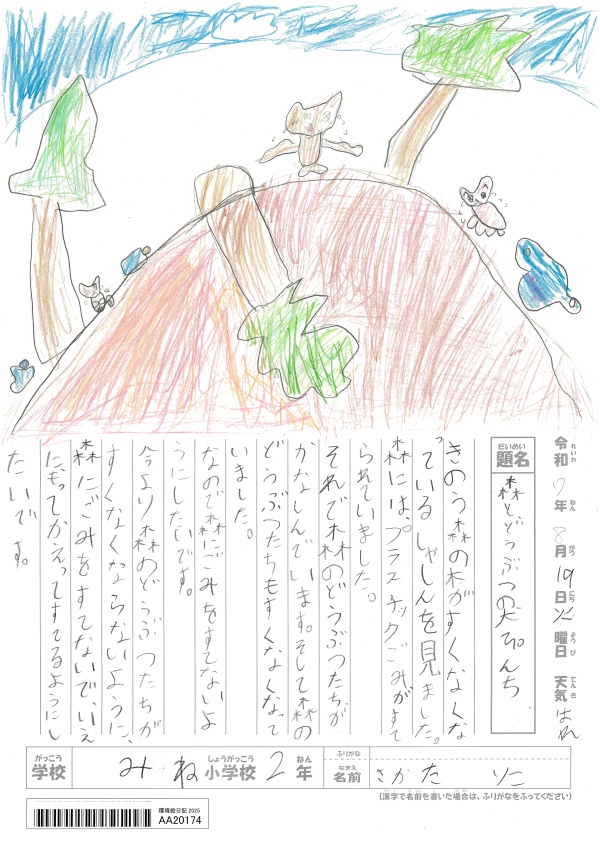 令和7年8月19日火曜日 天気はれ
題名 森とどうぶつの大ぴんち
きのう森の木がすくなくな
っているしゃしんを見ました。
森には。プラスチックごみがすて
られていました。
それで森のどうぶつたちが
かなしんでいます。そして森の
どうぶつたちもすくなくなって
いました。
なので森にごみをすてないよ
うにしたいです。
今より森のどうぶつたちが
すくなくならないように、
森にごみをすてないで、いえ
にもってかえってすてるようにし
たいです。
学校 みね小学校2年 名前 さかた
(漢字で名前を書いた場合は、ふりがなをふってください)
環境絵日記 2025
AA20174